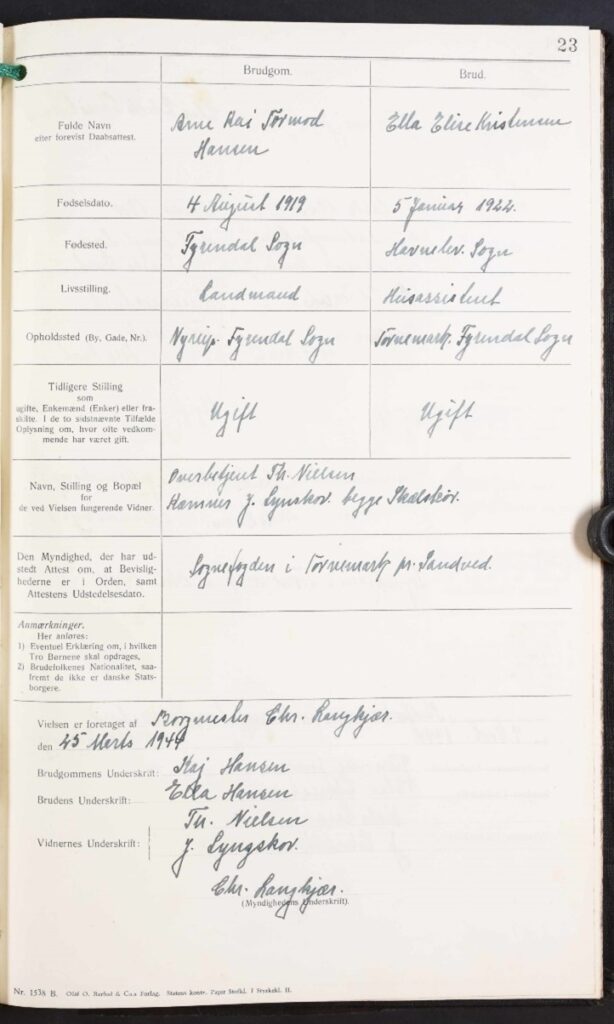 23
Brudgom.
Brud.
Fulde Navn
efter forevist Daabsattest.
Arne Kaj Tormod
Hansen
Ella Elise Kristensen
Fødselsdato.
4 August 1919
5 Januar 1922.
Fødested.
Fyrendal Sogn
Havnelev. Sogn
Livsstilling.
Landmand
Husassistent
Opholdssted (By, Gade, Nr.).
Nyrup. Fyrendal Sogn
Tornemark. Fyrendal Sogn
Tidligere Stilling
som
ugifte, Enkemænd (Enker) eller fra-
skilte. I de to sidstnævnte Tilfælde
Oplysning om, hvor ofte vedkom-
mende har været gift.
Ugift
Ugift
Navn, Stilling og Bopæl
for
de ved Vielsen fungerende Vidner.
Overbetjent Th. Nielsen
Kæmner J. Lyngskov. begge Skælskør.
Den Myndighed, der har ud-
stedt Attest om, at Bevislig-
hederne er i Orden, samt
Attestens Udstedelsesdato.
Sognefogden i Tornemark pr. Sandved.
Anmærkninger.
Her anføres:
1) Eventuel Erklæring om, i hvilken
Tro Børnene skal opdrages,
2) Brudefolkenes Nationalitet, saa-
fremt de ikke er danske Stats-
borgere.
Vielsen er foretaget af Borgmester Chr. Langkjær.
den 25 Marts 1944
Brudgommens Underskrift: Kaj Hansen
Brudens Underskrift: Ella Hansen
Th. Nielsen
Vidnernes Underskrift: J. Lyngskov.
Chr. Langkjær.
(Myndighedens Underskrift).
Nr. 1538 B.